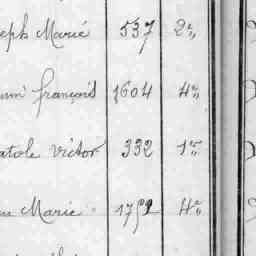 eph Marié 537 2e,,
françois 1604 4e,,
atole victor 332 1er,,
Marie 4e,,